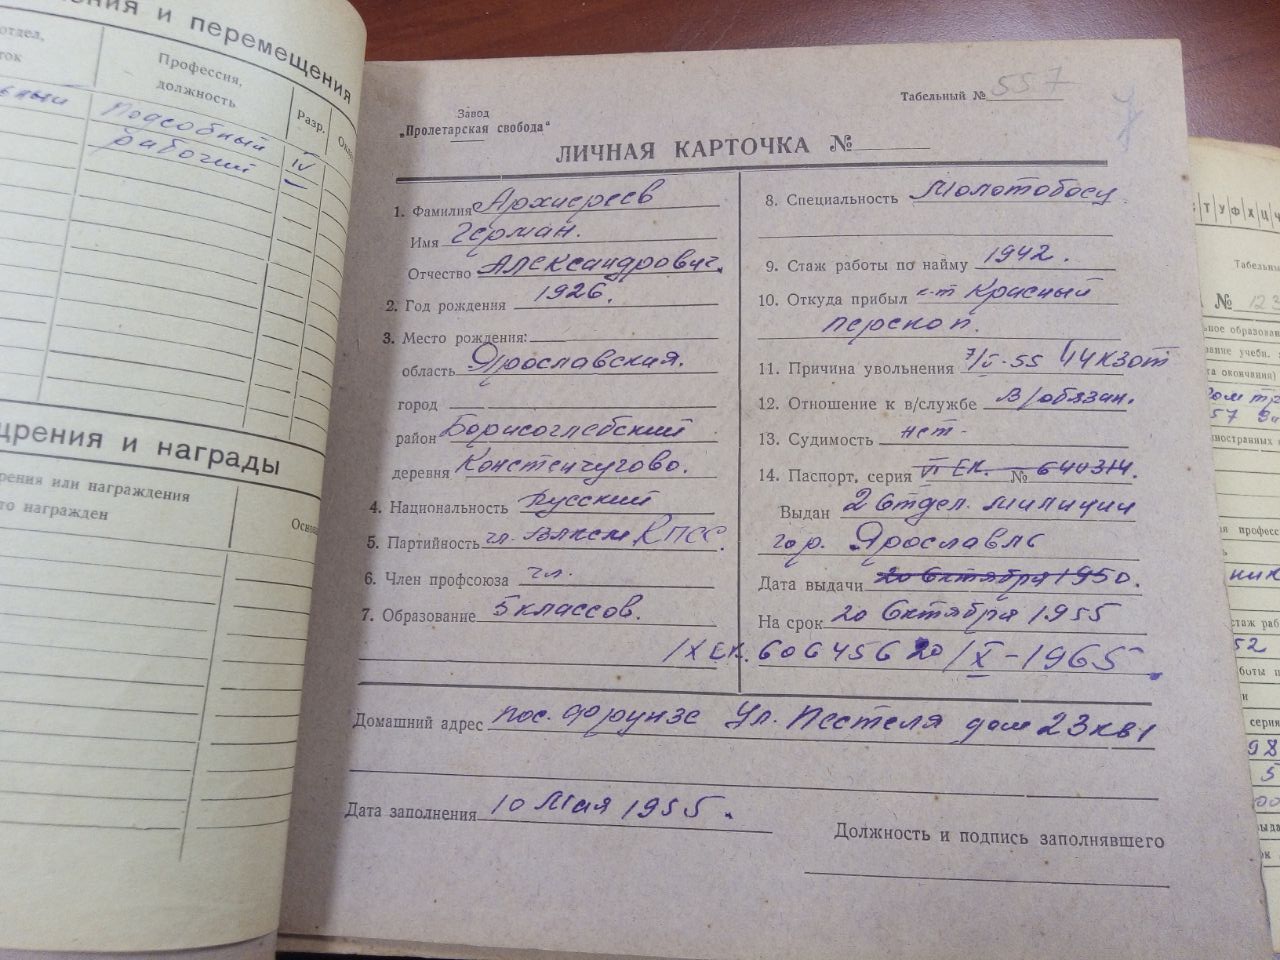 ения и перемещения
отдел,
ток
Профессия,
должность
Разр.
Подсобный
рабочий
IV
щрения и награды
рения или награждения
то награжден
Осно
Завод
„Пролетарская свобода"
Табельный № 557
ЛИЧНАЯ КАРТОЧКА №
1. Фамилия Архиереев
Имя Герман.
Отчество Александрович.
2. Год рождения 1926.
3. Место рождения:
область Ярославская.
город
район Борисоглебский
деревня Констенчугово.
4. Национальность Русский
5. Партийность чл. ВЛКСМ КПСС.
6. Член профсоюза чл.
7. Образование 5 классов.
8. Специальность Молотобоец.
9. Стаж работы по найму 1942.
10. Откуда прибыл к-т Красный
перекоп.
11. Причина увольнения 7/V-55 44 КЗОТ
12. Отношение к в/службе В/обязан.
13. Судимость нет-
14. Паспорт, серия VI ЕК. № 640314.
Выдан 2 Отдел. милиции
гор. Ярославль
Дата выдачи 20 Октября 1950.
На срок 20 Октября 1955
IX ЕК. 606456 20/X-1965
Домашний адрес пос. Фрунзе Ул. Пестеля дом 23 кв 1
Дата заполнения 10 Мая 1955.
Должность и подпись заполнявшего
Т У Ф Х Ц Ч
Табельны
№ 123